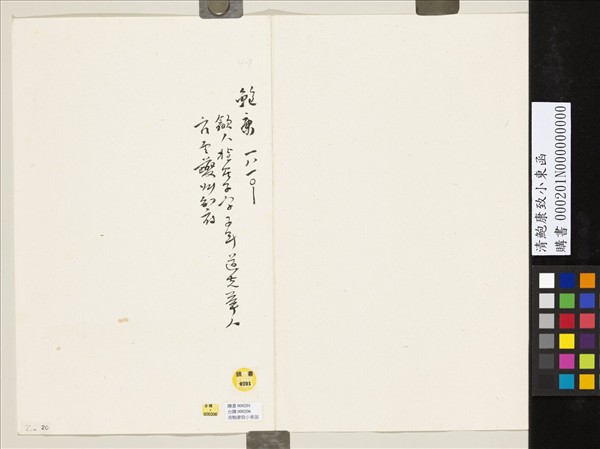 鮑康 一八一〇—
歙人 字子年 道光舉人
官至夔州知府
購書
0201
購書 000201
000206
清鮑康致小東函
2.
20
清鮑康致小東函
購書 000201N000000000